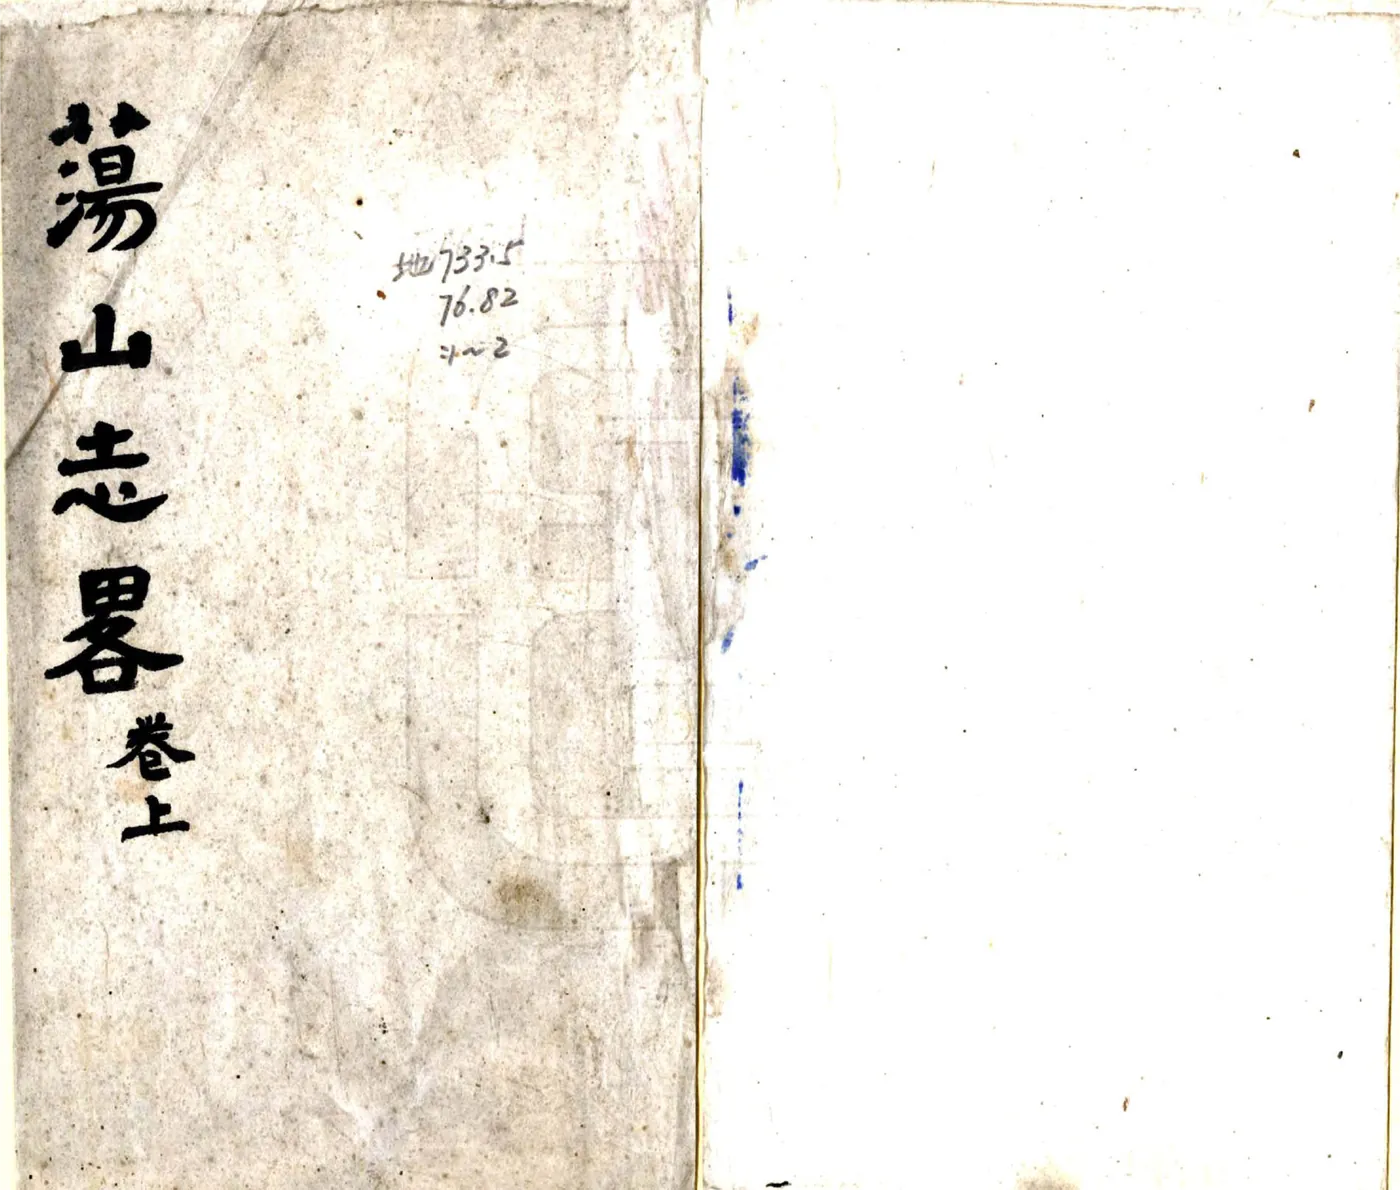 蕩山志畧
卷上
地733.5
76.82
:1~2